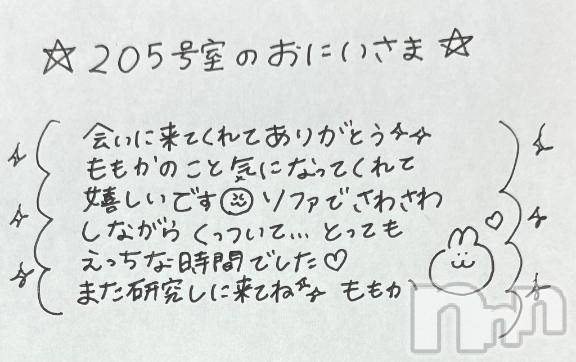 ☆205号室のおにいさま☆
会いに来てくれてありがとう
ももかのこと気になってくれて
嬉しいです ソファでさわさわ
しながらくっついて…とっても
えっちな時間でした♡
また研究しに来てね ももか